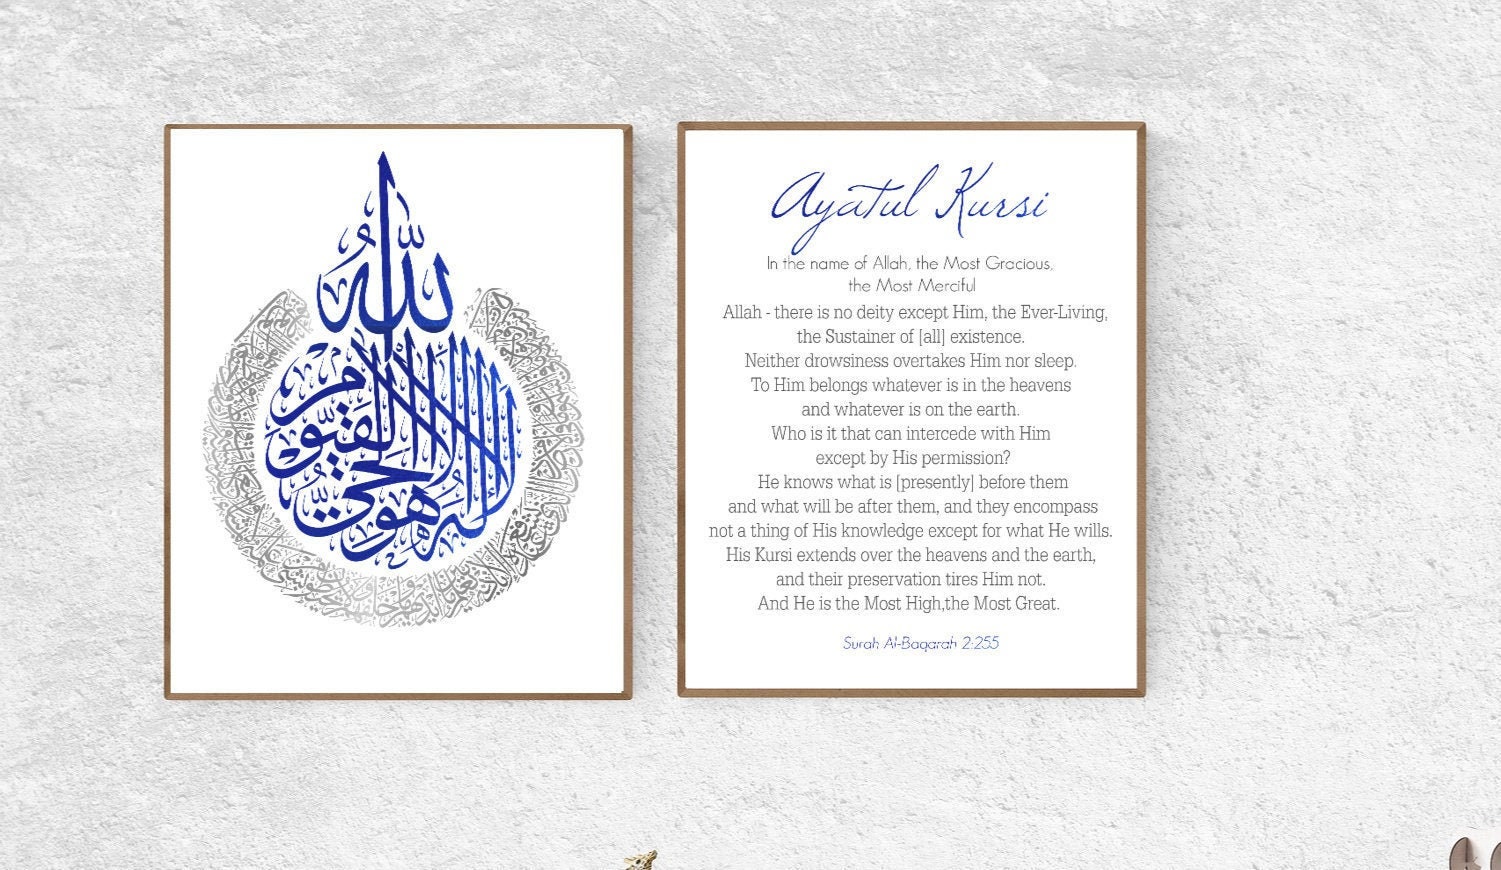 الله لا إله إلا هو الحي القيوم
Ayatul Kursi
In the name of Allah, the Most Gracious,
the Most Merciful
Allah - there is no deity except Him, the Ever-Living,
the Sustainer of [all] existence.
Neither drowsiness overtakes Him nor sleep.
To Him belongs whatever is in the heavens
and whatever is on the earth.
Who is it that can intercede with Him
except by His permission?
He knows what is [presently] before them
and what will be after them, and they encompass
not a thing of His knowledge except for what He wills.
His Kursi extends over the heavens and the earth,
and their preservation tires Him not.
And He is the Most High,the Most Great.
Surah Al-Baqarah 2:255